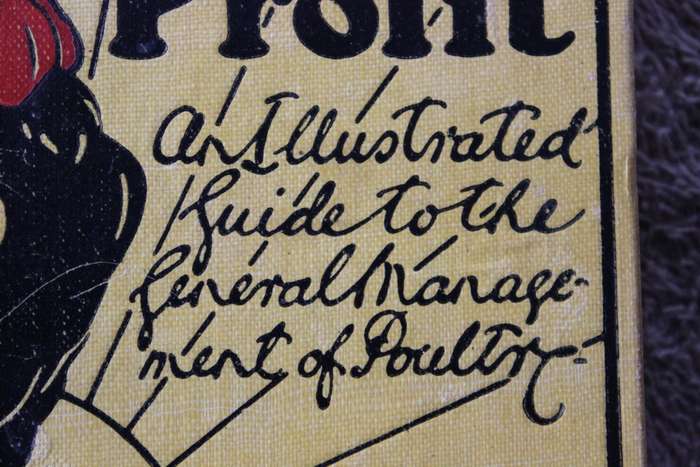 Profit
An Illustrated
Guide to the
General Manage-
ment of Poultry.